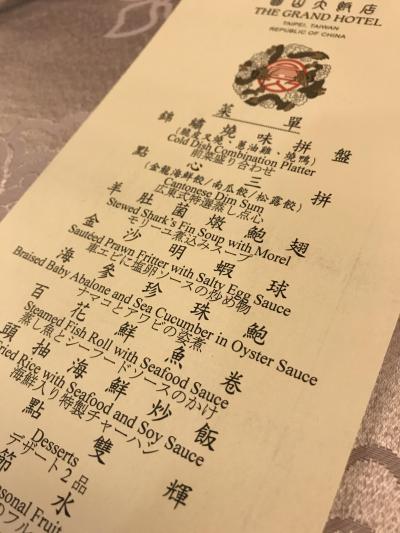 圓山大飯店
THE GRAND HOTEL
TAIPEI, TAIWAN
REPUBLIC OF CHINA
菜單
錦繡燒味拼盤
(脆皮叉燒、蔥油雞、燒鴨)
Cold Dish Combination Platter
前菜盛り合わせ
點心三拼
(金龍海鮮餃/南瓜餃/松露餃)
Cantonese Dim Sum
広東式特選蒸し点心
羊肚菌燉鮑翅
Stewed Shark's Fin Soup with Morel
モリーユ煮込みスープ
金沙明蝦球
Sautéed Prawn Fritter with Salty Egg Sauce
車エビに塩卵ソースの炒め物
海參珍珠鮑
Braised Baby Abalone and Sea Cucumber in Oyster Sauce
ナマコとアワビの姿煮
百花鮮魚卷
Steamed Fish Roll with Seafood Sauce
蒸し魚とシーフードソースのかけ
頭抽海鮮炒飯
Fried Rice with Seafood and Soy Sauce
海鮮入り特製チャーハン
點雙輝
Desserts
デザート2品
節水
Fruit